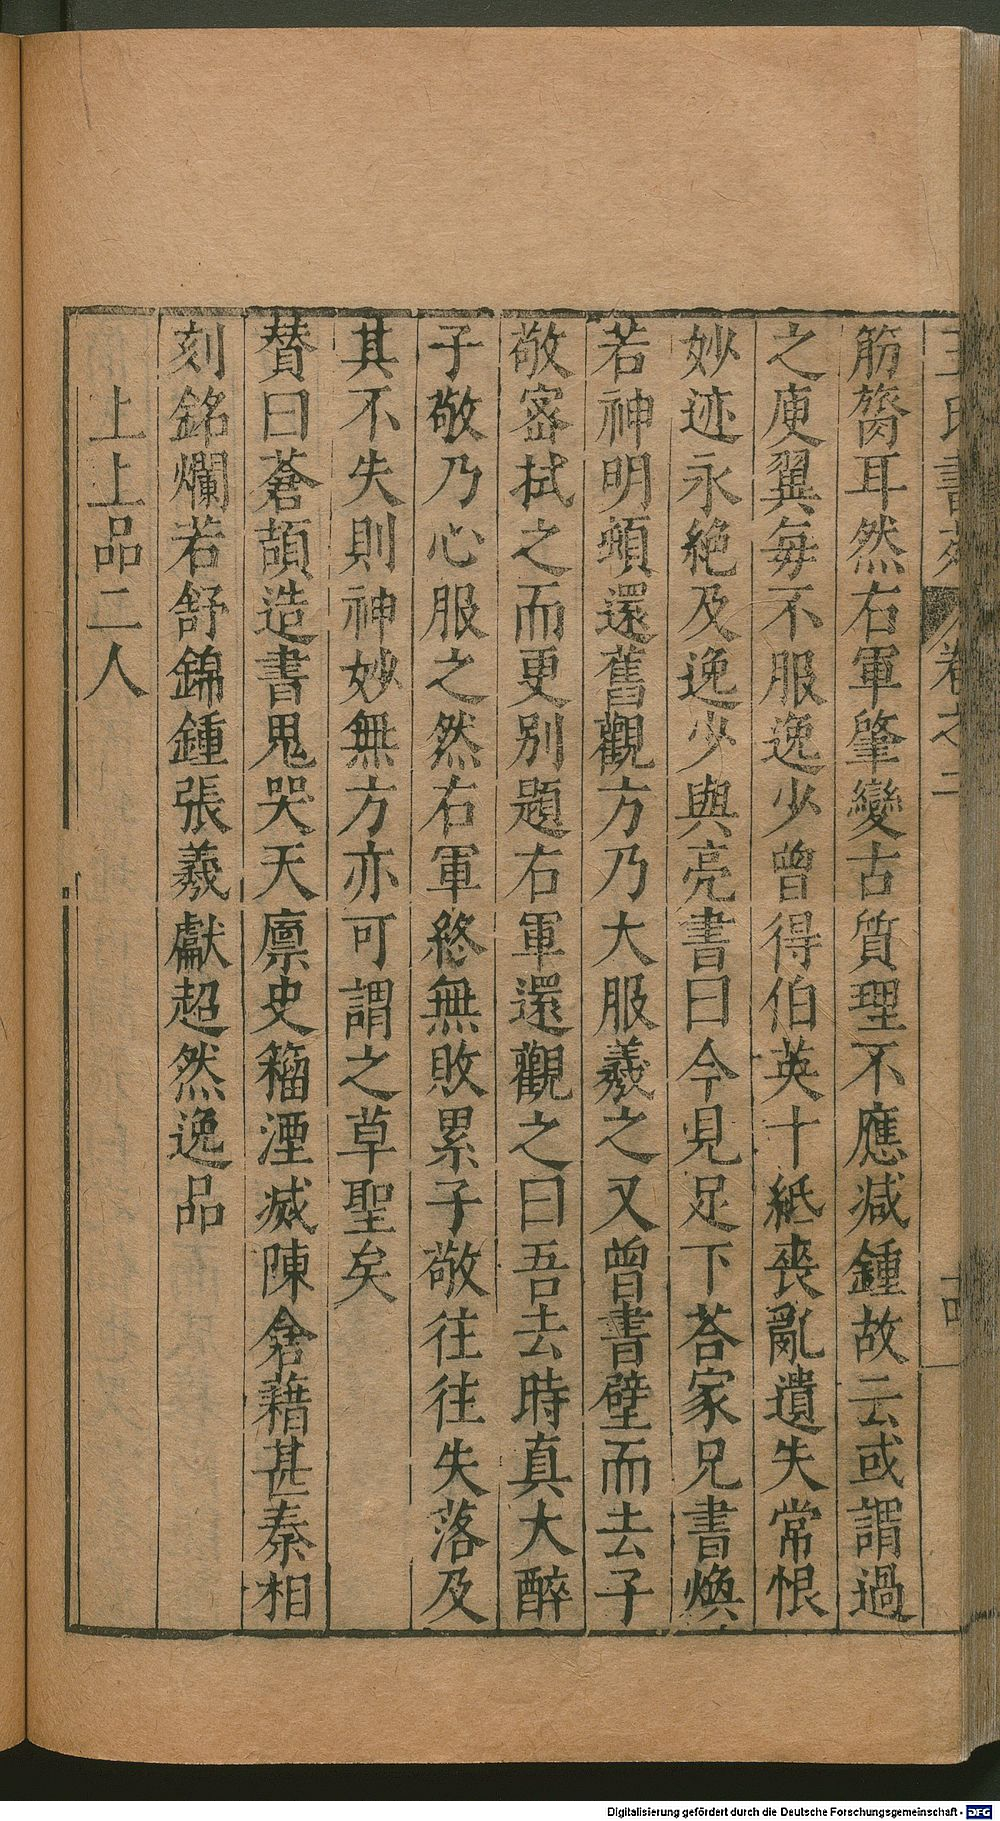 王氏書苑 卷之二
筋䯨耳然右軍肇變古質理不應減鍾故云或謂過
之庾翼每不服逸少曾得伯英十紙喪亂遺失常恨
妙迹永絶及逸少與亮書曰今見足下荅家兄書煥
若神明頓還舊觀方乃大服羲之又曾書壁而去子
敬宻拭之而更别題右軍還觀之曰吾去時真大醉
子敬乃心服之然右軍終無敗累子敬往往失落及
其不失則神妙無方亦可謂之草聖矣
贊曰蒼頡造書鬼哭天廪史籀湮滅陳倉藉甚秦相
刻銘爛若舒錦鍾張羲獻超然逸品
上上品二人
Digitalisierung gefördert durch die Deutsche Forschungsgemeinschaft - DFG